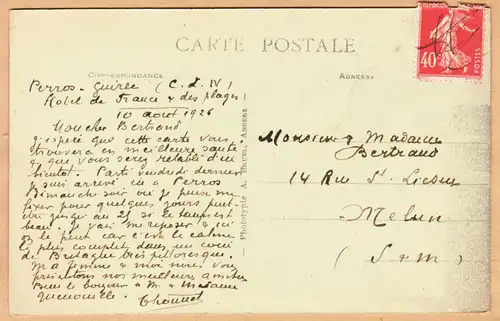 CARTE POSTALE
CORRESPONDANCE
ADRESSE
40c
POSTES
Perros-Guirec (C. d. N)
Hotel de France & des plages
10 aout 1926
Mon cher Bertrand
J'espère que cette carte vous
trouvera en meilleure santé
& que vous serez rétabli d'ici
bientot. Parti vendredi dernier
je suis arrivé ici a Perros
Dimanche soir où je pense me
fixer pour quelques jours peut-
être jusqu'au 25 si le temps est
beau. Je vais me reposer & ici
On le peut car c'est le calme
le plus complet dans un coin
de Bretagne très pittoresque.
Ma femme & moi nous vous
présentons nos meilleurs amitiés
Bien le bonjour a M. & Madame
Phototypie A. BRUEL, ANGERS
Monsieur & Madame
Bertrand
14 Rue St
Melun
(S & M)